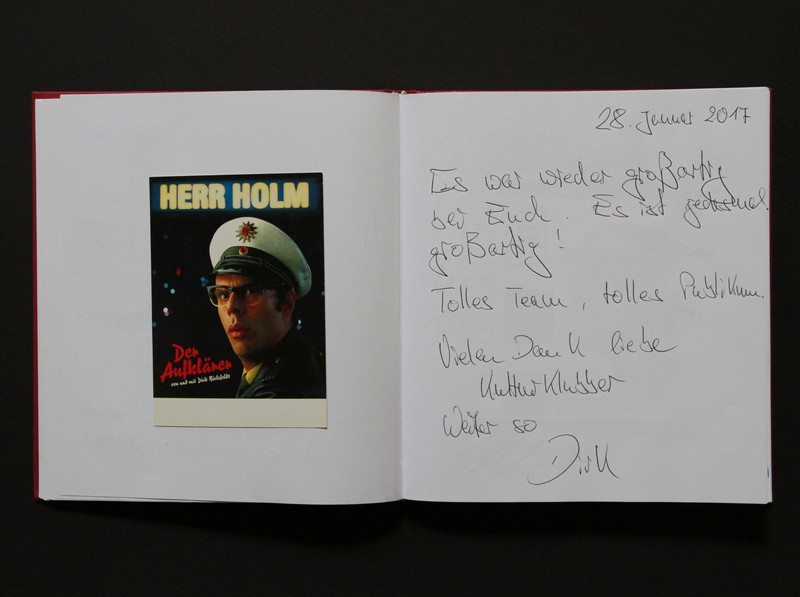 HERR HOLM
Der
Aufklärer
von und mit Dirk Bielefeldt
28. Januar 2017
Es war wieder großartig
bei Euch. Es ist jedesmal
großartig!
Tolles Team, tolles Publikum.
Vielen Dank liebe
Kulturklubber
Weiter so
Dirk